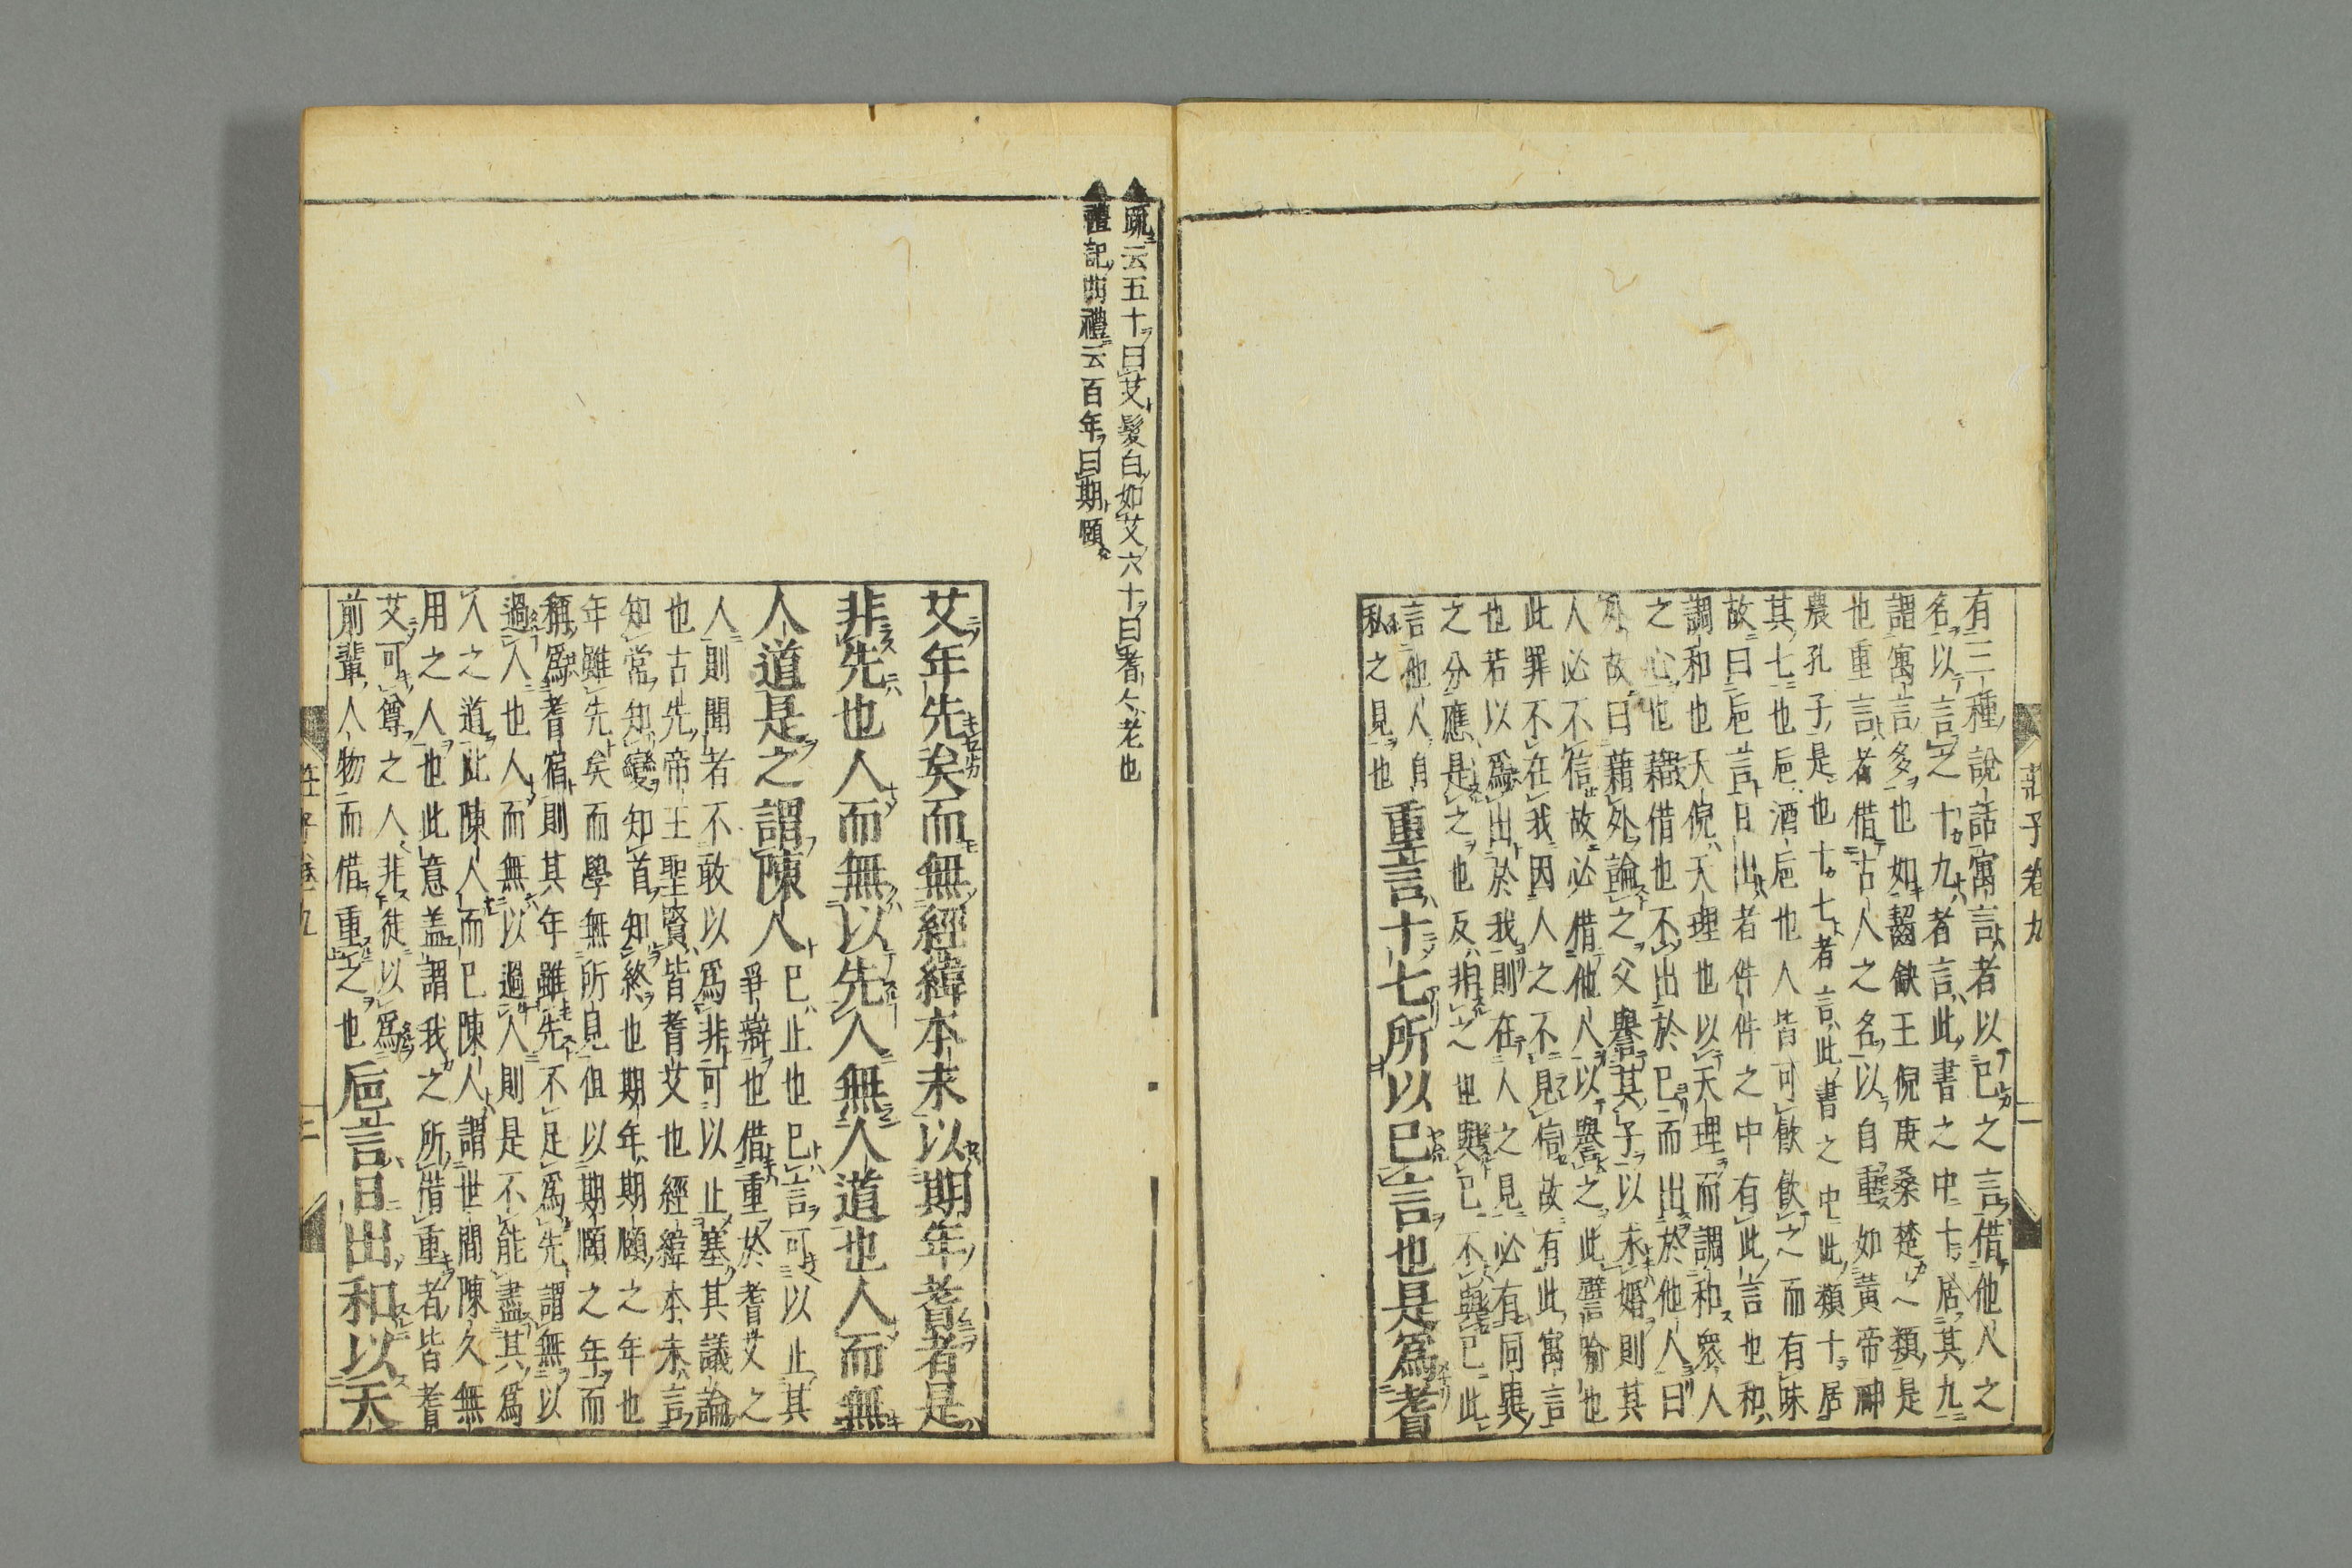 莊子卷九
二
有三種說話寓言者以己之言借他人之
名以言之十九者言此書之中十居其九
謂寓言多也如齧缺王倪庚桑楚之類是
也重言者借古人之名以自重如黃帝神
農孔子是也十七者言此書之中此類十居
其七也巵酒巵也人皆可飲飲之而有味
故曰巵言日出者件件之中有此言也和
調和也天倪天理也以天理而調和衆人
之心也藉借也不出於己而出於他人曰
外故曰藉外論之父譽其子以求婚則其
人必不信故必借他人以譽之此譬喻也
此罪不在我因人之不見信故有此寓言
也若以爲出於我則在人之見必有同異
之分應是之也反非之也與己不與己此
言他人自
私之見也重言十七所以已言也是爲耆
疏云五十曰艾髮白如艾六十曰耆人老也
禮記曲禮云百年曰期頤
艾年先矣而無經緯本末以期年耆者是
非先也人而無以先人無人道也人而無
人道是之謂陳人已止也已言可以止其
爭辯也借重於耆艾之
人則聞者不敢以爲非可以止塞其議論
也古先帝王聖賢皆耆艾也經緯本末言
知常知變知首知終也期年期頤之年也
年雖先矣而學無所見但以期頤之年而
稱爲耆宿則其年雖先不足爲先謂無以
過人也人而無以過人則是不能盡其爲
人之道此陳人而已陳人謂世間陳久無
用之人也此意蓋謂我之所借重者皆耆
艾可尊之人非徒以爲
前輩人物而借重之也巵言日出和以天